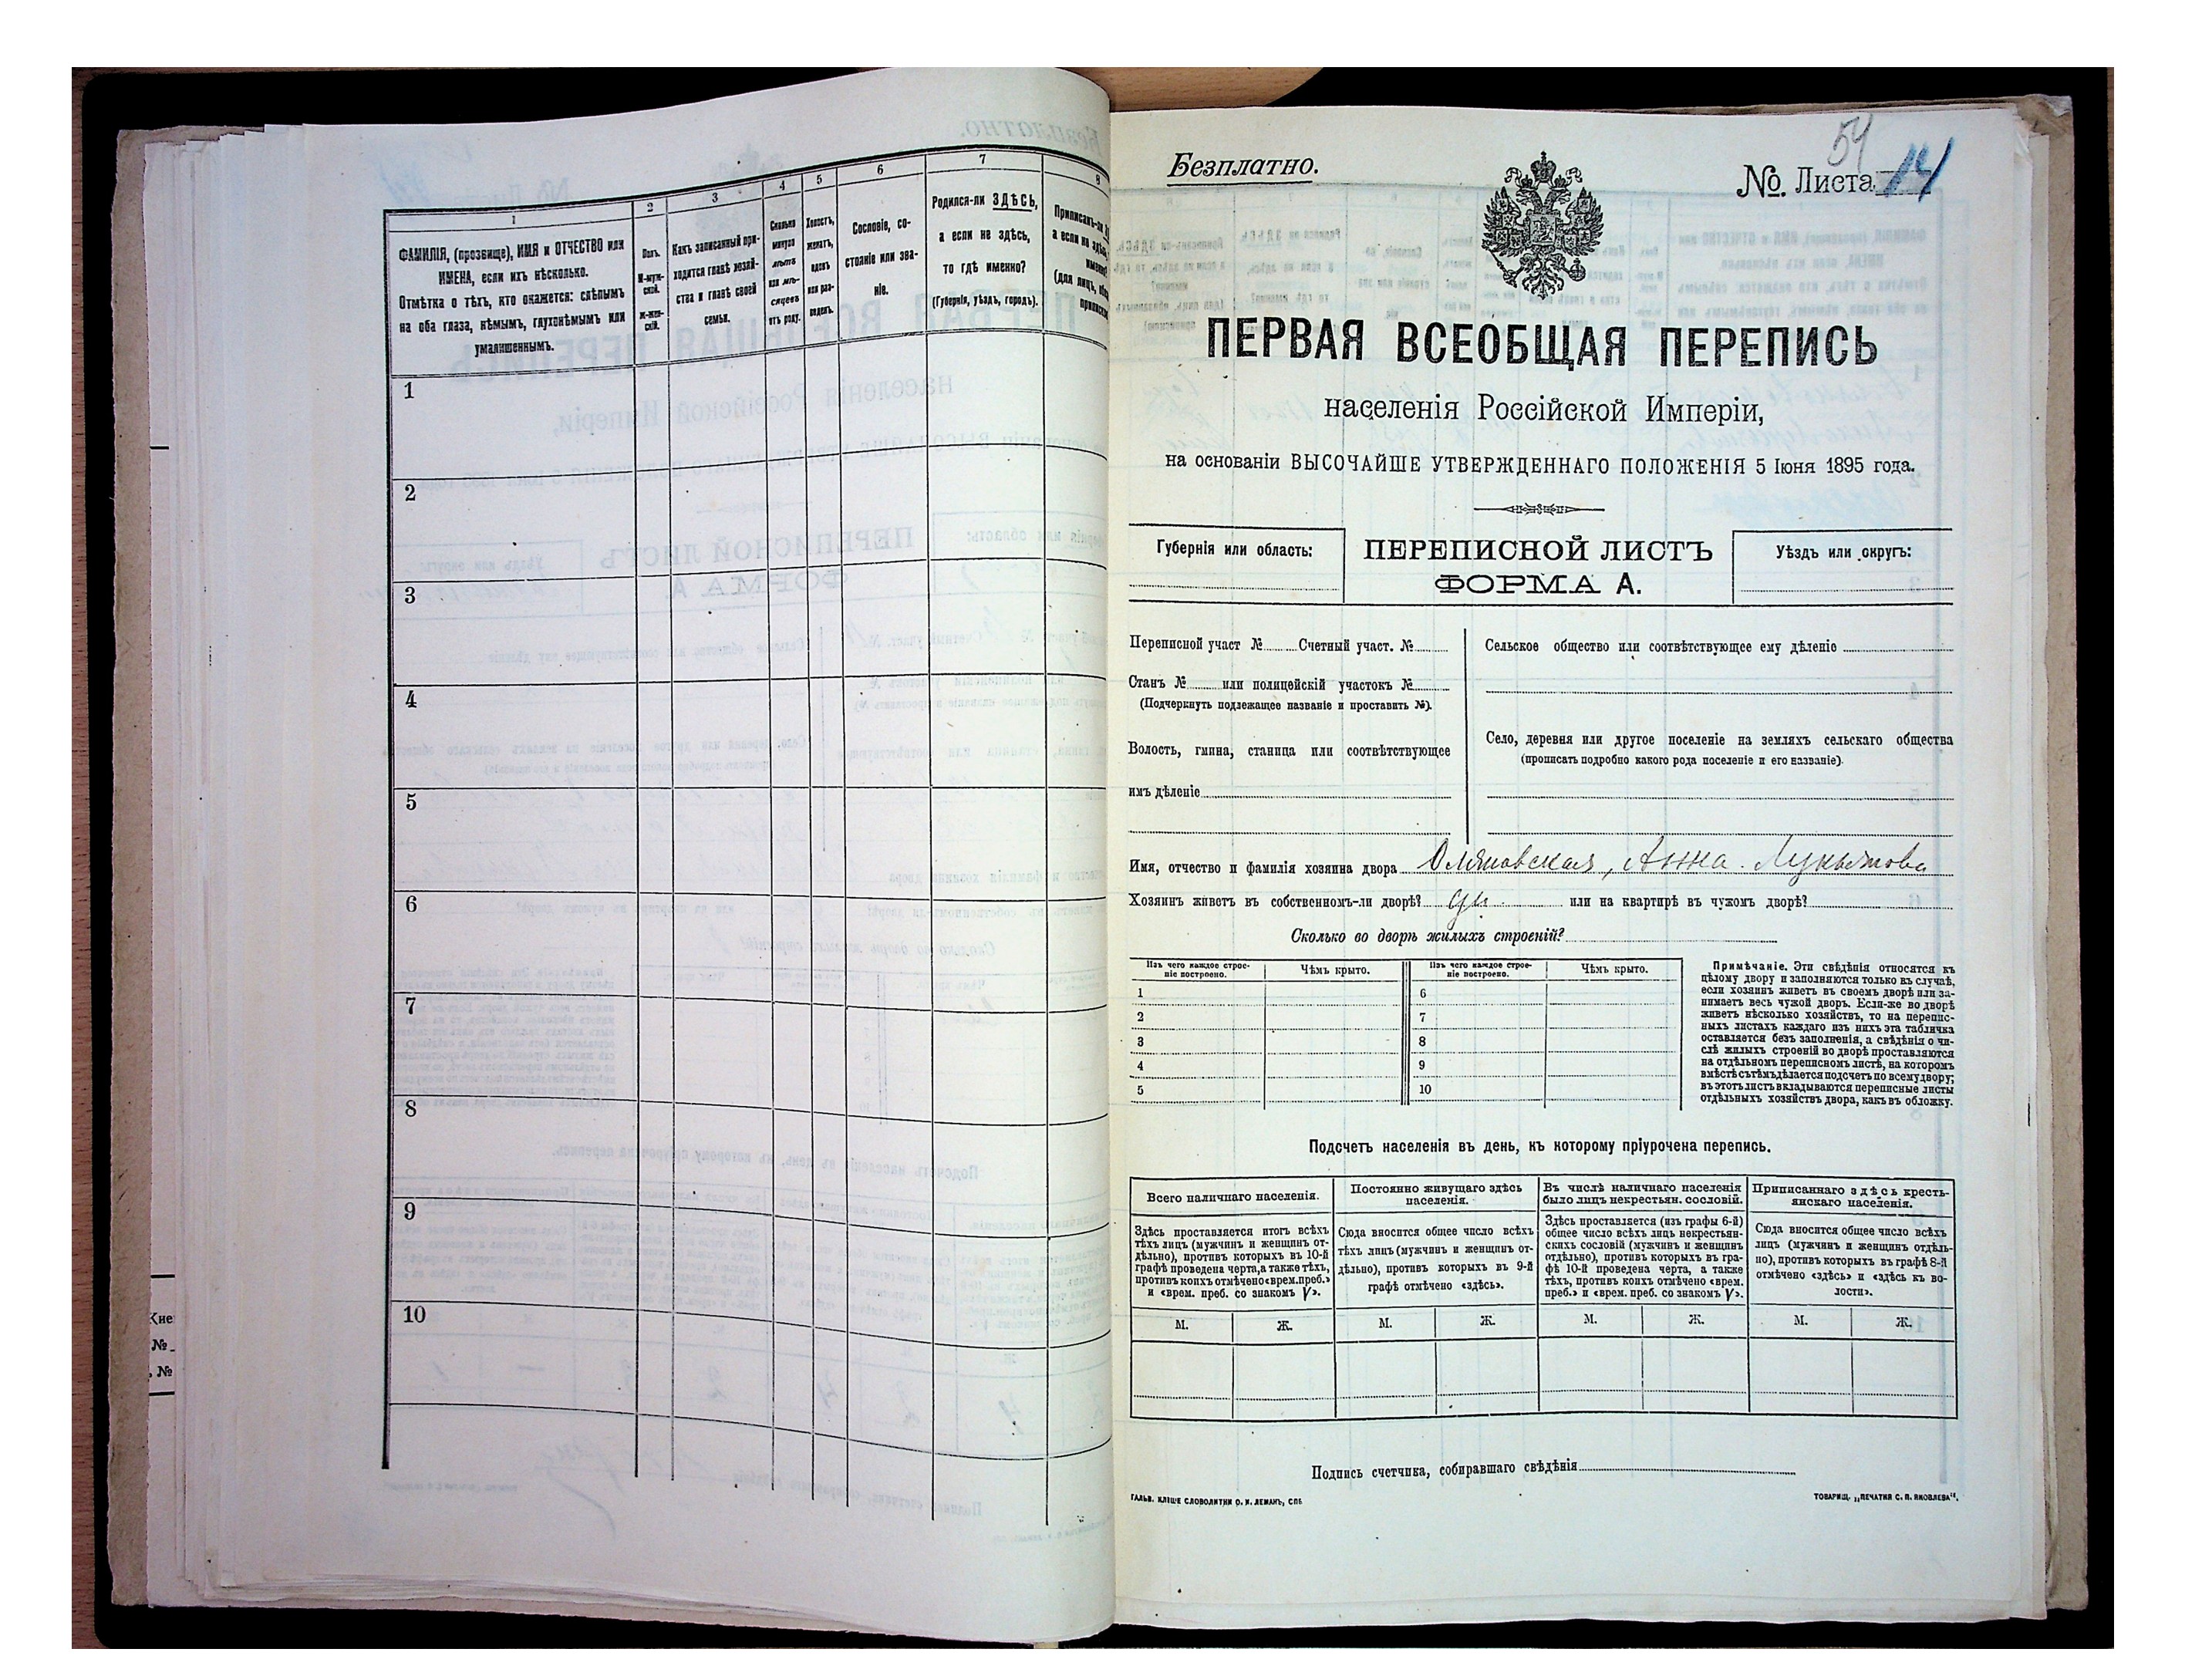 1
ФАМИЛІЯ, (прозвище), ИМЯ и ОТЧЕСТВО или
ИМЕНА, если ихъ нѣсколько.
Отмѣтка о тѣхъ, кто окажется: слѣпымъ
на оба глаза, нѣмымъ, глухонѣмымъ или
умалишеннымъ.
2
Полъ.
М-муж-
ской.
Ж-жен-
скій.
3
Какъ записанный при-
ходится главѣ хозяй-
ства и главѣ своей
семьи.
4
Сколько
минуло
лѣтъ
или мѣ-
сяцевъ
отъ роду.
5
Холостъ,
женатъ,
вдовъ
или раз-
веденъ.
6
Сословіе, со-
стояніе или зва-
ніе.
7
Родился-ли ЗДѢСЬ,
а если не здѣсь,
то гдѣ именно?
(Губернія, уѣздъ, городъ).
8
Приписанъ-ли
а если не здѣсь,
(для лицъ,
1
2
3
4
5
6
7
8
9
10
№
№
Безплатно.
54
№ Листа 14
ПЕРВАЯ ВСЕОБЩАЯ ПЕРЕПИСЬ
населенія Россійской Имперіи,
на основаніи ВЫСОЧАЙШЕ УТВЕРЖДЕННАГО ПОЛОЖЕНІЯ 5 Іюня 1895 года.
Губернія или область:
ПЕРЕПИСНОЙ ЛИСТЪ
ФОРМА А.
Уѣздъ или округъ:
Переписной участ № Счетный участ. №
Станъ № или полицейскій участокъ №
(Подчеркнуть подлежащее названіе и проставить №).
Волость, гмина, станица или соотвѣтствующее
имъ дѣленіе
Сельское общество или соотвѣтствующее ему дѣленіе
Село, деревня или другое поселеніе на земляхъ сельскаго общества
(прописать подробно какого рода поселеніе и его названіе).
Имя, отчество и фамилія хозяина двора Анна
Хозяинъ живетъ въ собственномъ-ли дворѣ? или на квартирѣ въ чужомъ дворѣ?
Сколько во дворѣ жилыхъ строеній?
Изъ чего каждое строе-
ніе построено.
Чѣмъ крыто.
Изъ чего каждое строе-
ніе построено.
Чѣмъ крыто.
1
2
3
4
5
6
7
8
9
10
Примѣчаніе. Эти свѣдѣнія относятся къ
цѣлому двору и заполняются только въ случаѣ,
если хозяинъ живетъ въ своемъ дворѣ или за-
нимаетъ весь чужой дворъ. Если-же во дворѣ
живетъ нѣсколько хозяйствъ, то на перепис-
ныхъ листахъ каждаго изъ нихъ эта табличка
оставляется безъ заполненія, а свѣдѣнія о чи-
слѣ жилыхъ строеній во дворѣ проставляются
на отдѣльномъ переписномъ листѣ, на которомъ
вмѣстѣ съ тѣмъ дѣлается подсчетъ по всему двору;
въ этотъ листъ вкладываются переписные листы
отдѣльныхъ хозяйствъ двора, какъ въ обложку.
Подсчетъ населенія въ день, къ которому пріурочена перепись.
Всего наличнаго населенія.
Здѣсь проставляется итогъ всѣхъ
тѣхъ лицъ (мужчинъ и женщинъ от-
дѣльно), противъ которыхъ въ 10-й
графѣ проведена черта, а также тѣхъ,
противъ коихъ отмѣчено «врем. преб.»
и «врем. преб. со знакомъ V».
Постоянно живущаго здѣсь
населенія.
Сюда вносится общее число всѣхъ
тѣхъ лицъ (мужчинъ и женщинъ от-
дѣльно), противъ которыхъ въ 9-й
графѣ отмѣчено «здѣсь».
Въ числѣ наличнаго населенія
было лицъ некрестьян. сословій.
Здѣсь проставляется (изъ графы 6-й)
общее число всѣхъ лицъ некрестьян-
скихъ сословій (мужчинъ и женщинъ
отдѣльно), противъ которыхъ въ гра-
фѣ 10-й проведена черта, а также
тѣхъ, противъ коихъ отмѣчено «врем.
преб.» и «врем. преб. со знакомъ V».
Приписаннаго здѣсь кресть-
янскаго населенія.
Сюда вносится общее число всѣхъ
лицъ (мужчинъ и женщинъ отдѣль-
но), противъ которыхъ въ графѣ 8-й
отмѣчено «здѣсь» и «здѣсь къ во-
лости».
М. Ж. М. Ж. М. Ж. М. Ж.
Подпись счетчика, собиравшаго свѣдѣнія
ГАЛЬВ. КЛИШЕ СЛОВОЛИТНИ О. И. ЛЕМАНЪ, СПБ
ТОВАРИЩ. „ПЕЧАТНЯ С. П. ЯКОВЛЕВА“.